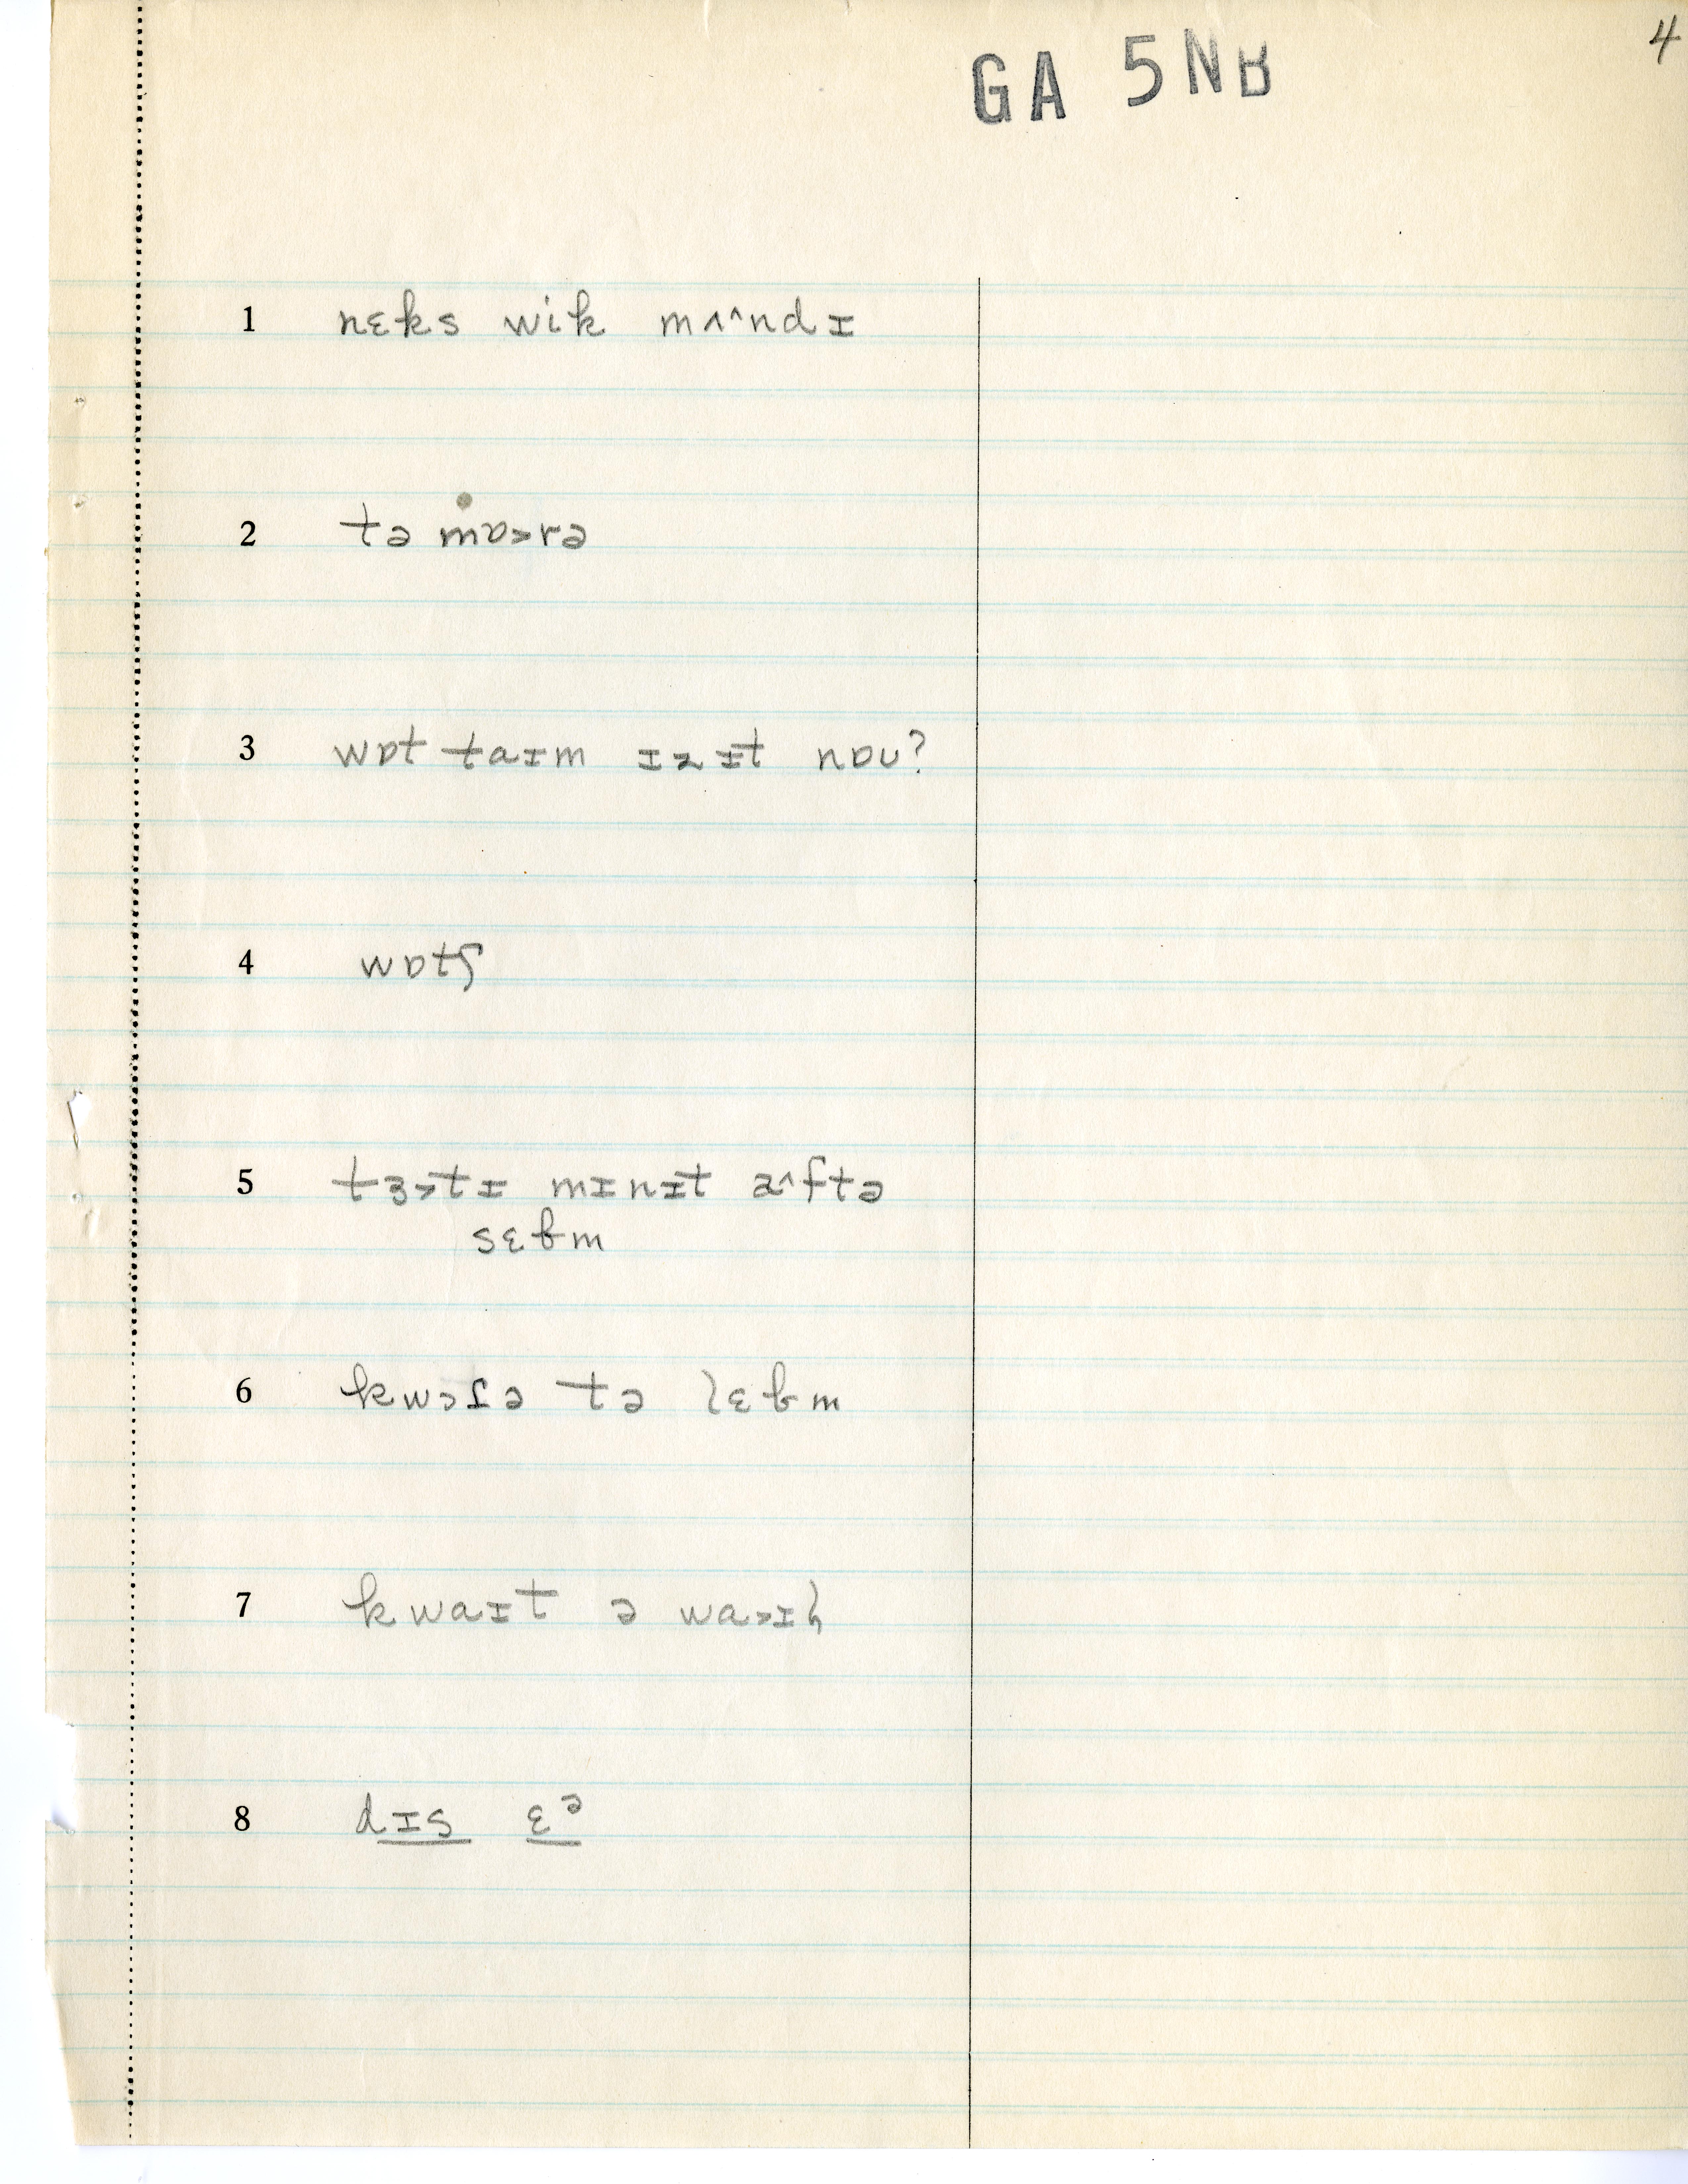 4
GA 5NB
1 nɛks wik mʌ^ndɪ
2 tə mɒ>rə
3 wɒt taɪm ɪz ɪt nɒu?
4 wɒtʃ
5 tɜ>tɪ mɪnɪt a^ftə
sɛbm
6 kwɔ>ɾə tə lɛbm
7 kwaɪt ə wa>ɪl
8 dɪs ɛᵊ